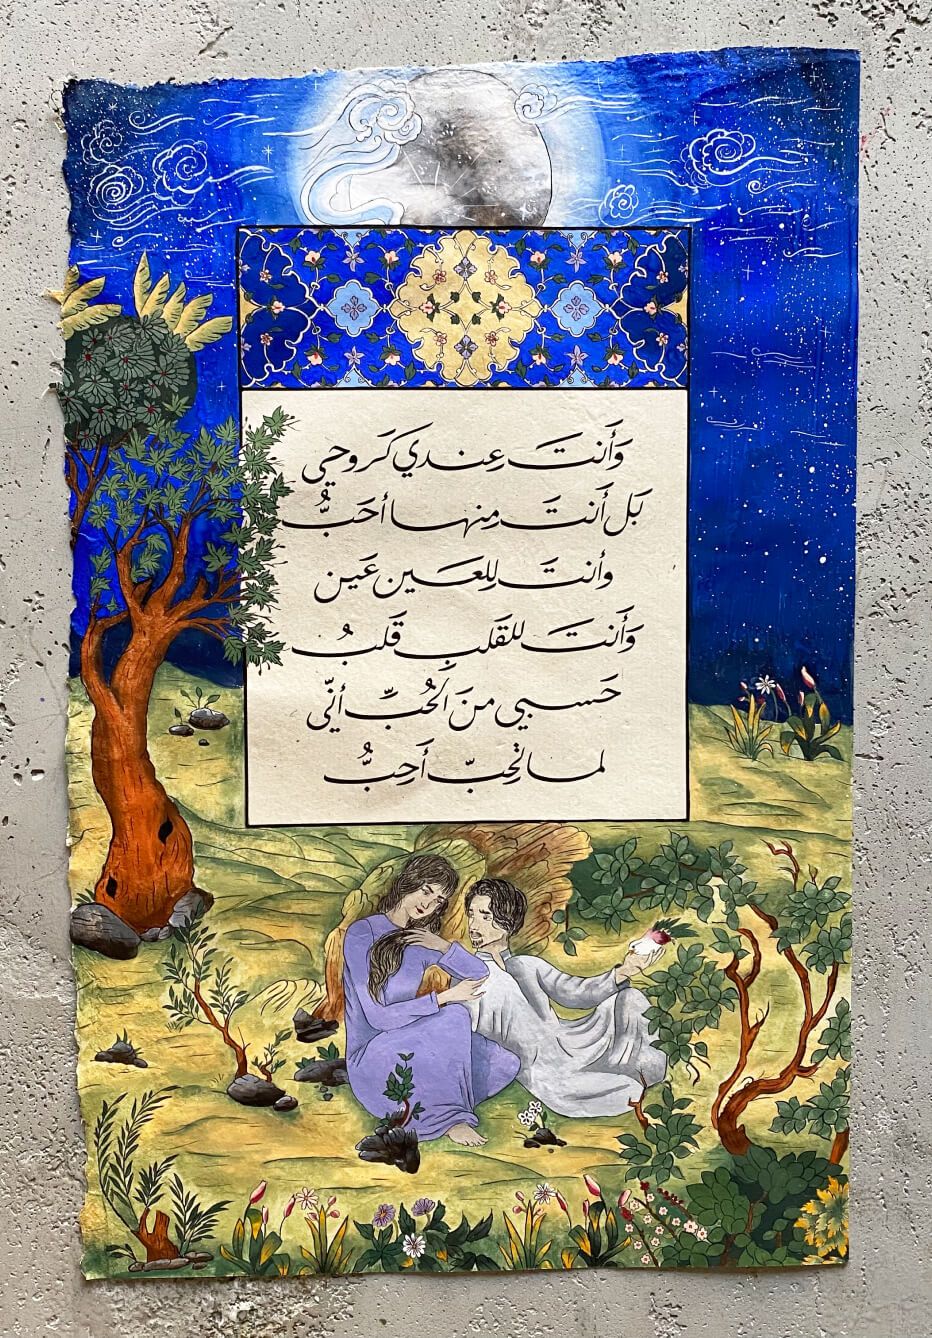 وَأَنتَ عِندي كَروحي
بَل أَنتَ مِنها أحَبُّ
وأنتَ لِلعَينِ عَين
وَأَنتَ للقَلبِ قَلبُ
حَسبي منَ الحُبِّ أنّي
لما تُحبّ أَحِبُّ